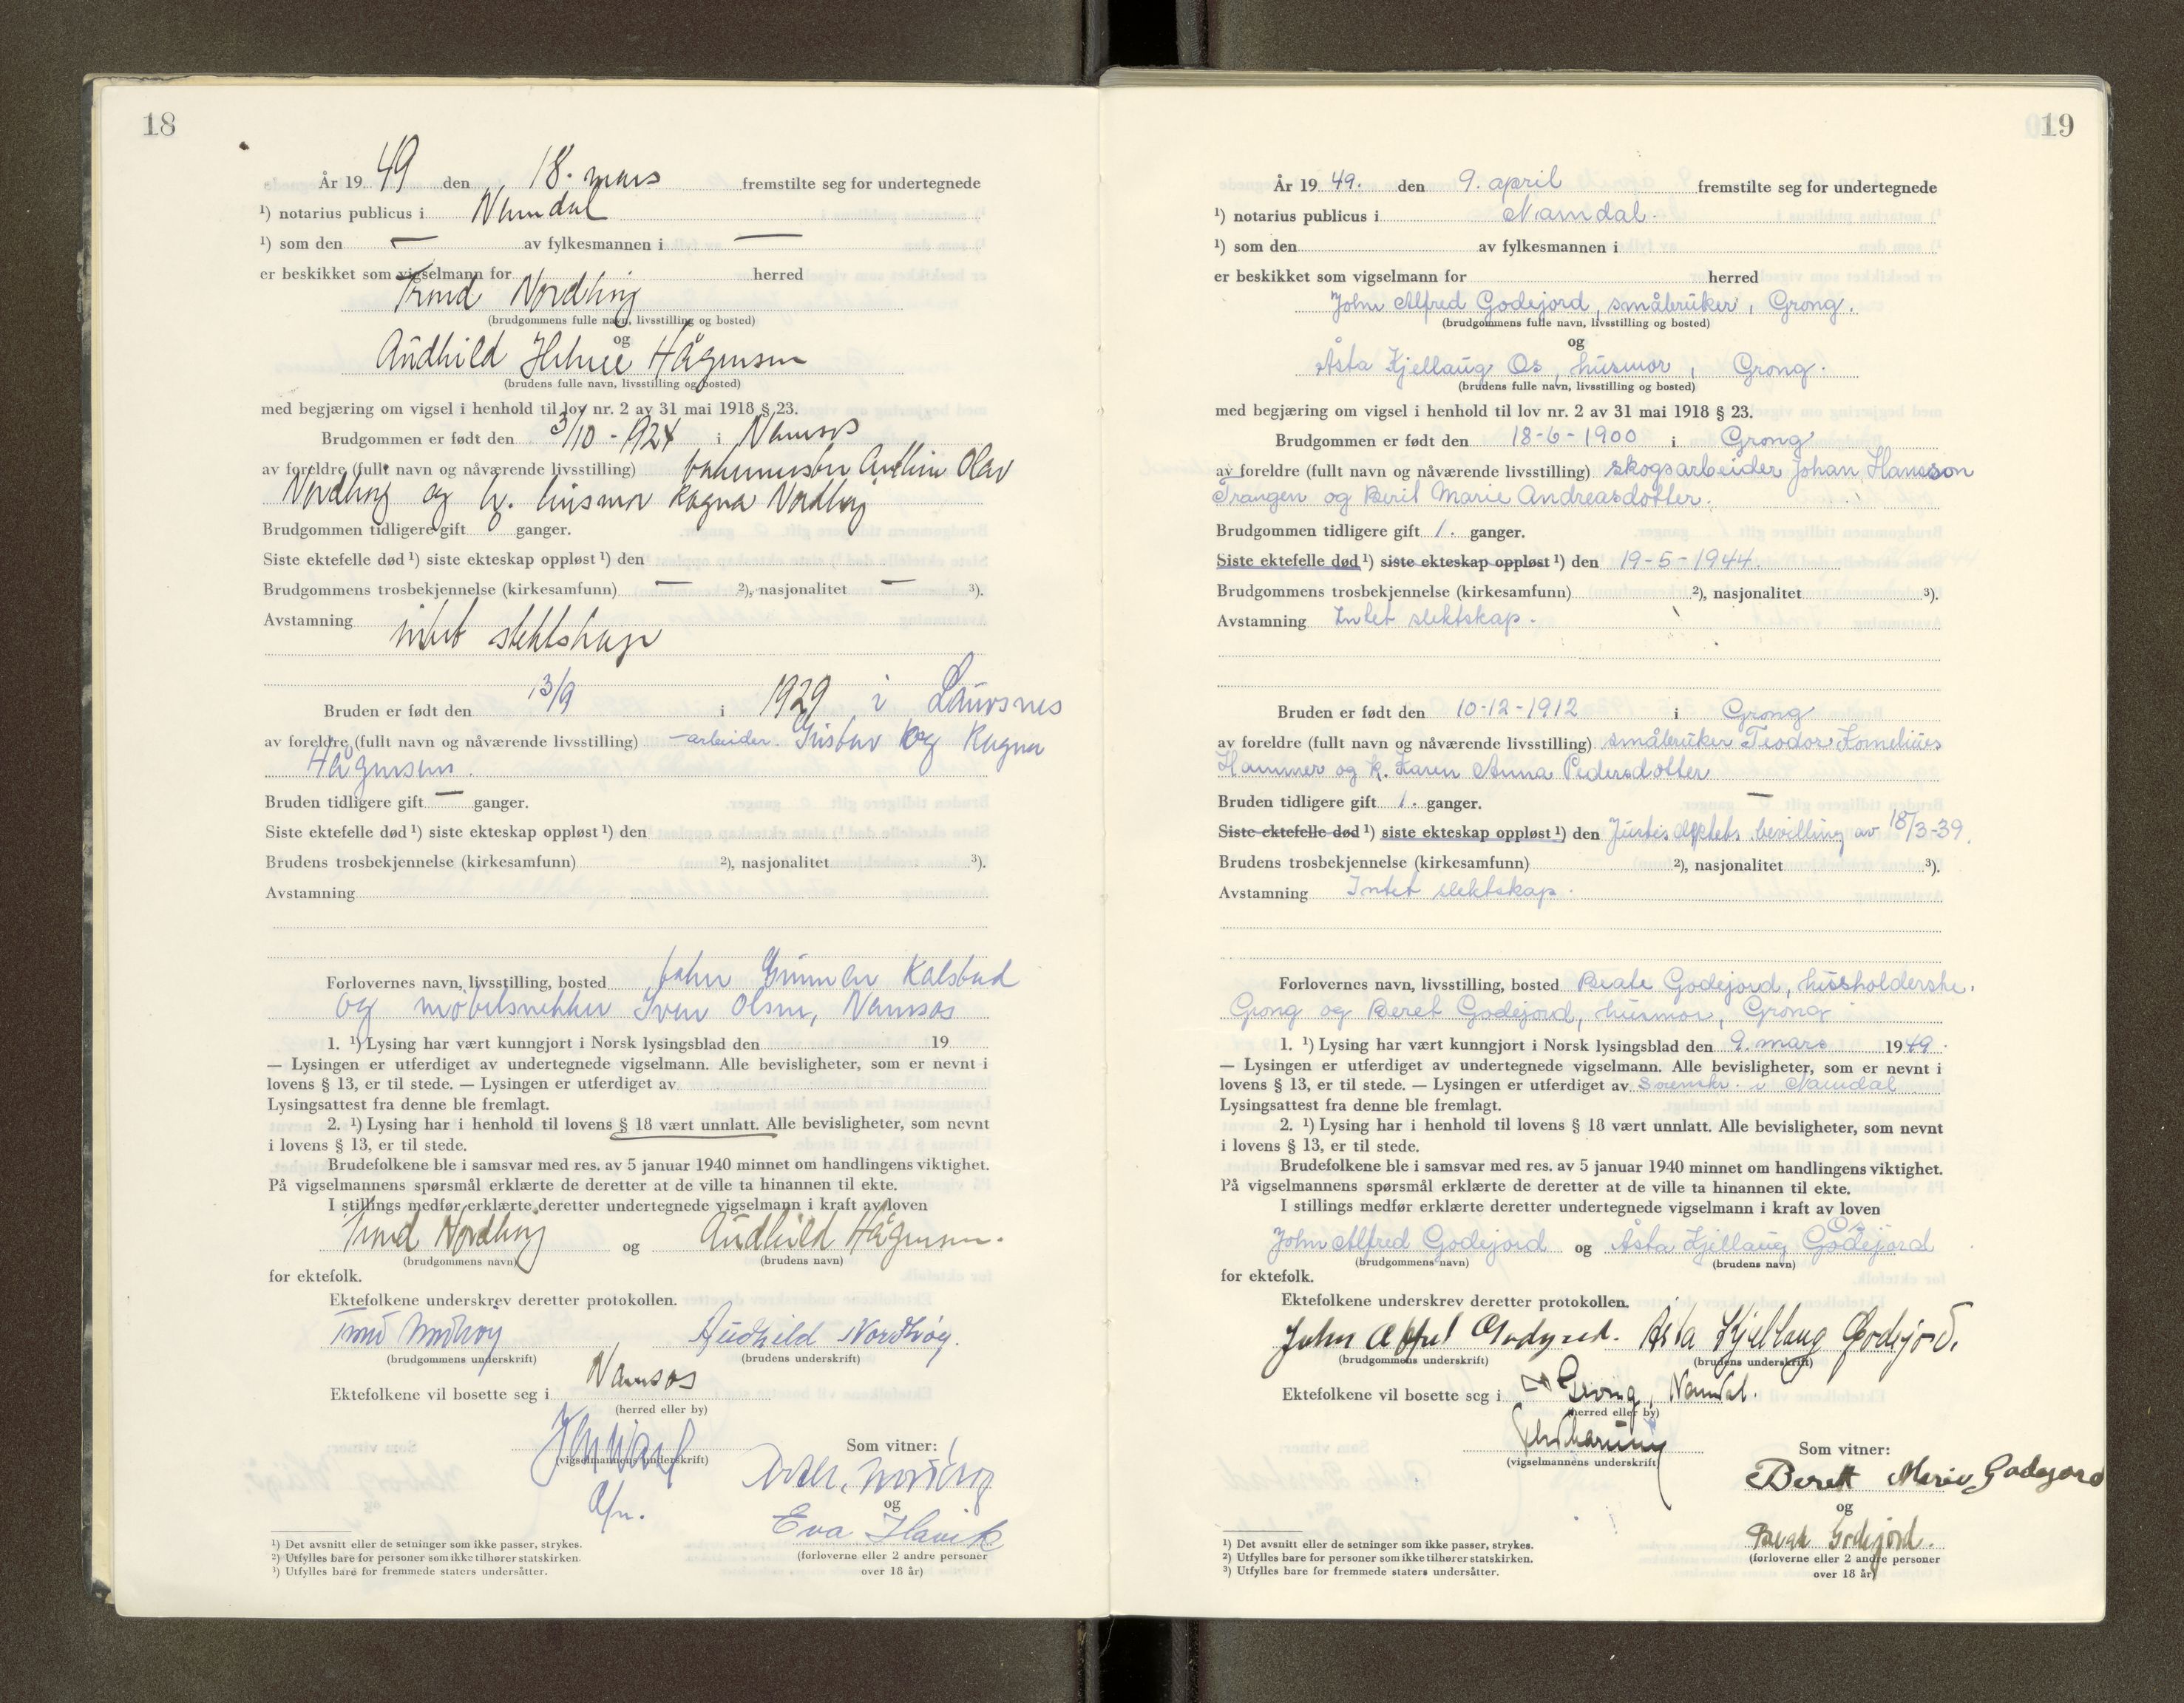 18
År 19 49 den 18. mars fremstilte seg for undertegnede
¹) notarius publicus i Namdal
¹) som den — av fylkesmannen i —
er beskikket som vigselmann for herred
Trond Nordhøy
(brudgommens fulle navn, livsstilling og bosted)
og
Audhild Helene Hågensen
(brudens fulle navn, livsstilling og bosted)
med begjæring om vigsel i henhold til lov nr. 2 av 31 mai 1918 § 23.
Brudgommen er født den 3/10 - 1924 i Namsos
av foreldre (fullt navn og nåværende livsstilling) Olav
Nordhøy og h. husmor Ragna Nordhøy
Brudgommen tidligere gift 0 ganger.
Siste ektefelle død ¹) siste ekteskap oppløst ¹) den
Brudgommens trosbekjennelse (kirkesamfunn) — ²), nasjonalitet — ³).
Avstamning intet slektskap
Bruden er født den 13/9 i 1929 i Lauvsnes
av foreldre (fullt navn og nåværende livsstilling) -arbeider. Gustav og Ragna
Hågensen.
Bruden tidligere gift — ganger.
Siste ektefelle død ¹) siste ekteskap oppløst ¹) den
Brudens trosbekjennelse (kirkesamfunn) ²), nasjonalitet ³).
Avstamning
Forlovernes navn, livsstilling, bosted Gunnar Kalstad
og møbelsnekker Iver Olsen, Namsos
1. ¹) Lysing har vært kunngjort i Norsk lysingsblad den 19
— Lysingen er utferdiget av undertegnede vigselmann. Alle bevisligheter, som er nevnt i
lovens § 13, er til stede. — Lysingen er utferdiget av
Lysingsattest fra denne ble fremlagt.
2. ¹) Lysing har i henhold til lovens § 18 vært unnlatt. Alle bevisligheter, som nevnt
i lovens § 13, er til stede.
Brudefolkene ble i samsvar med res. av 5 januar 1940 minnet om handlingens viktighet.
På vigselmannens spørsmål erklærte de deretter at de ville ta hinannen til ekte.
I stillings medfør erklærte deretter undertegnede vigselmann i kraft av loven
Trond Nordhøy og Audhild Hågensen.
(brudgommens navn) (brudens navn)
for ektefolk.
Ektefolkene underskrev deretter protokollen.
Trond Nordhøy Audhild Nordhøy.
(brudgommens underskrift) (brudens underskrift)
Ektefolkene vil bosette seg i Namsos
(herred eller by)
Som vitner:
(vigselmannens underskrift)
og
Eva Havik
(forloverne eller 2 andre personer
over 18 år)
¹) Det avsnitt eller de setninger som ikke passer, strykes.
²) Utfylles bare for personer som ikke tilhører statskirken.
³) Utfylles bare for fremmede staters undersåtter.
19
År 19 49. den 9. april fremstilte seg for undertegnede
¹) notarius publicus i Namdal.
¹) som den av fylkesmannen i
er beskikket som vigselmann for herred
John Alfred Godejord, småbruker, Grong.
(brudgommens fulle navn, livsstilling og bosted)
og
Åsta Kjellaug Os, husmor, Grong.
(brudens fulle navn, livsstilling og bosted)
med begjæring om vigsel i henhold til lov nr. 2 av 31 mai 1918 § 23.
Brudgommen er født den 18-6-1900 i Grong
av foreldre (fullt navn og nåværende livsstilling) skogsarbeider Johan Hansson
Trangen og Berit Marie Andreasdotter.
Brudgommen tidligere gift 1. ganger.
Siste ektefelle død ¹) siste ekteskap oppløst ¹) den 19-5-1944.
Brudgommens trosbekjennelse (kirkesamfunn) ²), nasjonalitet ³).
Avstamning Intet slektskap.
Bruden er født den 10-12-1912 i Grong
av foreldre (fullt navn og nåværende livsstilling) småbruker Teodor Kornelius
Hammer og k. Karen Anna Pedersdotter
Bruden tidligere gift 1. ganger.
Siste ektefelle død ¹) siste ekteskap oppløst ¹) den Justisdeptets bevilling av 18/3-39.
Brudens trosbekjennelse (kirkesamfunn) ²), nasjonalitet ³).
Avstamning Intet slektskap.
Forlovernes navn, livsstilling, bosted Beate Godejord, husholderske,
Grong og Beret Godejord, husmor, Grong
1. ¹) Lysing har vært kunngjort i Norsk lysingsblad den 9. mars 1949.
— Lysingen er utferdiget av undertegnede vigselmann. Alle bevisligheter, som er nevnt i
lovens § 13, er til stede. — Lysingen er utferdiget av sorenskr. i Namdal
Lysingsattest fra denne ble fremlagt.
2. ¹) Lysing har i henhold til lovens § 18 vært unnlatt. Alle bevisligheter, som nevnt
i lovens § 13, er til stede.
Brudefolkene ble i samsvar med res. av 5 januar 1940 minnet om handlingens viktighet.
På vigselmannens spørsmål erklærte de deretter at de ville ta hinannen til ekte.
I stillings medfør erklærte deretter undertegnede vigselmann i kraft av loven
Os
John Alfred Godejord og Åsta Kjellaug Godejord
(brudgommens navn) (brudens navn)
for ektefolk.
Ektefolkene underskrev deretter protokollen.
John Alfred Godejord. Åsta Kjellaug Godejord.
(brudgommens underskrift) (brudens underskrift)
Ektefolkene vil bosette seg i Grong, Namdal.
(herred eller by)
Som vitner:
(vigselmannens underskrift)
Berett Marie Godejord
og
Beate Godejord.
(forloverne eller 2 andre personer
over 18 år)
¹) Det avsnitt eller de setninger som ikke passer, strykes.
²) Utfylles bare for personer som ikke tilhører statskirken.
³) Utfylles bare for fremmede staters undersåtter.